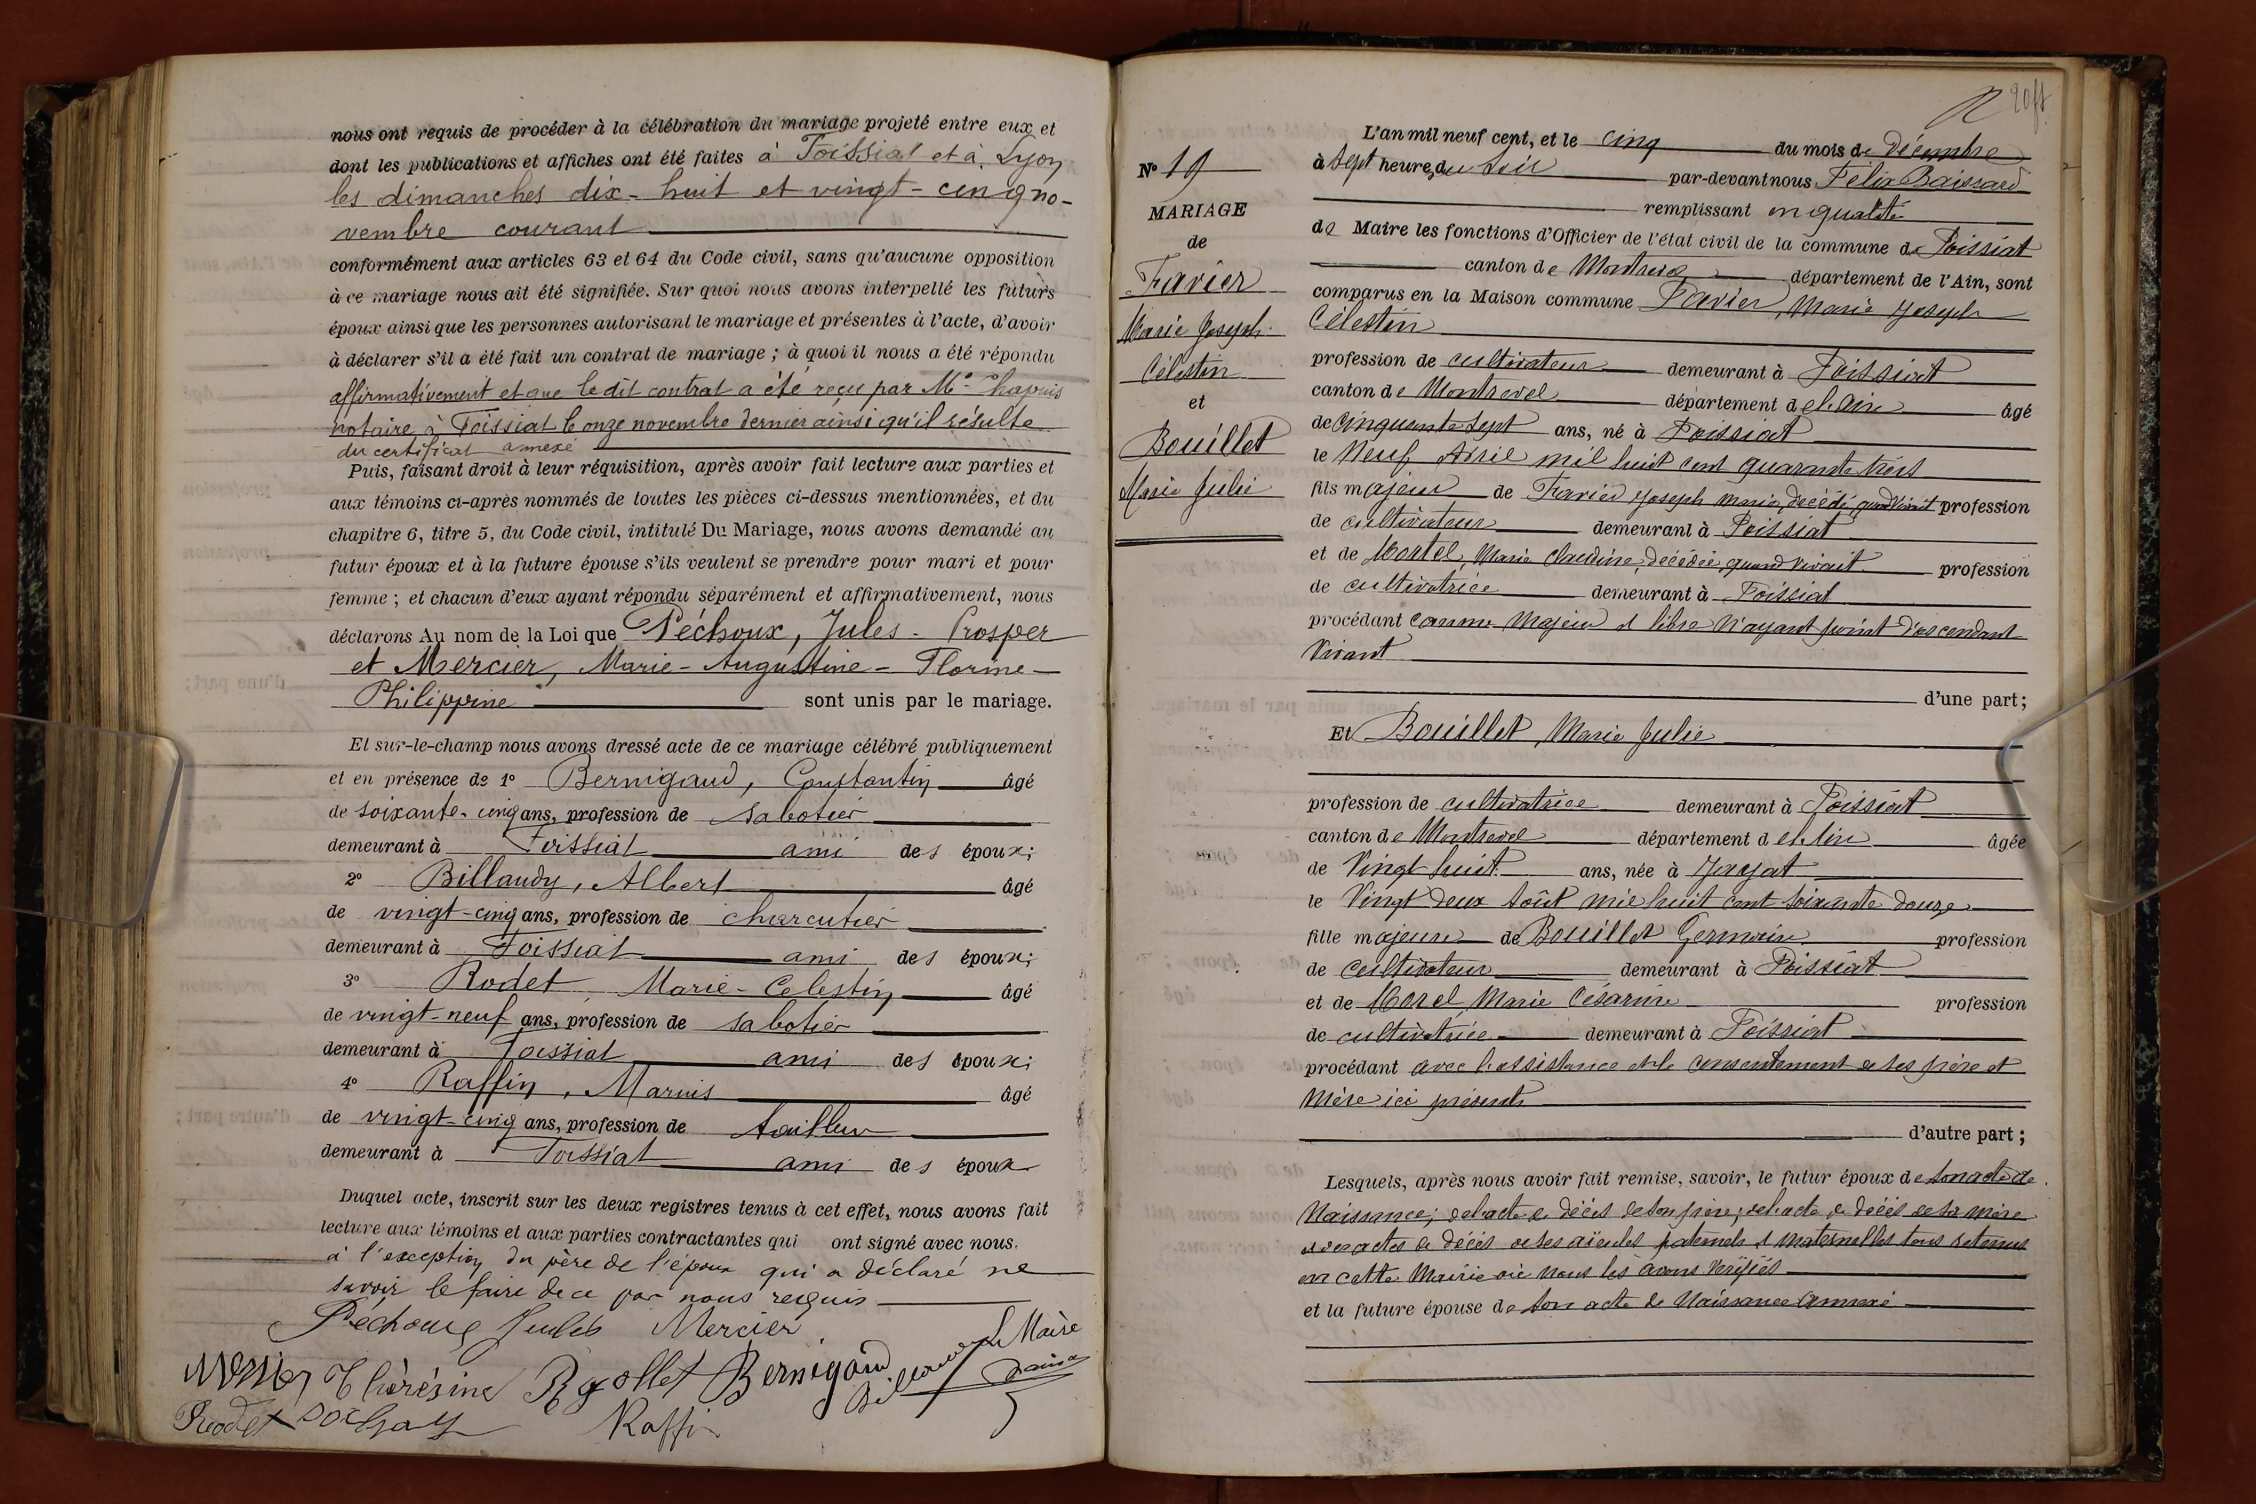 nous ont requis de procéder à la célébration du mariage projeté entre eux et
dont les publications et affiches ont été faites à Foissiat et à Lyon
les dimanches dix-huit et vingt-cinq no-
vembre courant
conformément aux articles 63 et 64 du Code civil, sans qu'aucune opposition
à ce mariage nous ait été signifiée. Sur quoi nous avons interpellé les futurs
époux ainsi que les personnes autorisant le mariage et présentes à l'acte, d'avoir
à déclarer s'il a été fait un contrat de mariage ; à quoi il nous a été répondu
affirmativement et que le dit contrat a été reçu par Me Chapuis
notaire à Foissiat le onze novembre dernier ainsi qu'il résulte
du certificat annexé
Puis, faisant droit à leur réquisition, après avoir fait lecture aux parties et
aux témoins ci-après nommés de toutes les pièces ci-dessus mentionnées, et du
chapitre 6, titre 5, du Code civil, intitulé Du Mariage, nous avons demandé au
futur époux et à la future épouse s'ils veulent se prendre pour mari et pour
femme ; et chacun d'eux ayant répondu séparément et affirmativement, nous
déclarons Au nom de la Loi que Péchoux, Jules-Prosper
et Mercier, Marie-Augustine-Florine-
Philippine sont unis par le mariage.
Et sur-le-champ nous avons dressé acte de ce mariage célébré publiquement
et en présence de 1° Bernigaud, Constantin âgé
de soixante-cinq ans, profession de sabotier
demeurant à Foissiat ami des époux;
2° Billaudy, Albert âgé
de vingt-cinq ans, profession de charcutier
demeurant à Foissiat ami des époux;
3° Rodet, Marie-Celestin âgé
de vingt-neuf ans, profession de sabotier
demeurant à Foissiat ami des époux;
4° Raffin, Marius âgé
de vingt-cinq ans, profession de tailleur
demeurant à Foissiat ami des époux
Duquel acte, inscrit sur les deux registres tenus à cet effet, nous avons fait
lecture aux témoins et aux parties contractantes qui ont signé avec nous.
à l'exception du père de l'époux qui a déclaré ne
savoir le faire de ce par nous requis
Péchoux Jules Mercier
Thérésine Rollet Bernigaud Le Maire
Rodet Raffin
20 ft
N° 19
MARIAGE
de
Favier
Marie Joseph
Célestin
et
Bouillet
Marie Julie
L'an mil neuf cent, et le cinq du mois de Décembre
à Sept heures du soir par-devant nous Félix Baissard
remplissant en qualité
de Maire les fonctions d'Officier de l'état civil de la commune de Foissiat
canton de Montrevel département de l'Ain, sont
comparus en la Maison commune Favier, Marie Joseph
Célestin
profession de cultivateur demeurant à Foissiat
canton de Montrevel département de l'Ain âgé
de Cinquante sept ans, né à Foissiat
le Neuf Avril mil huit cent quarante trois
fils majeur de Favier Joseph Marie, décédé, quand vivait profession
de cultivateur demeurant à Foissiat
et de Mortel, Marie Claudine, décédée, quand vivait profession
de cultivatrice demeurant à Foissiat
procédant comme Majeur et libre n'ayant point d'ascendant
vivant
d'une part;
Et Bouillet Marie Julie
profession de cultivatrice demeurant à Foissiat
canton de Montrevel département de l'Ain âgée
de Vingt huit ans, née à Jayat
le Vingt deux Août mil huit cent soixante douze
fille majeure de Bouillet Germain profession
de cultivateur demeurant à Foissiat
et de Morel Marie Césarine profession
de cultivatrice demeurant à Foissiat
procédant avec l'assistance et le consentement de ses père et
mère ici présents
d'autre part ;
Lesquels, après nous avoir fait remise, savoir, le futur époux de son acte de
Naissance; de l'acte de décès de son père; de l'acte de décès de sa mère
et des actes de décès de ses aïeules paternels et maternelles tous retenus
en cette Mairie où nous les avons vérifiés
et la future épouse de son acte de Naissance annexé